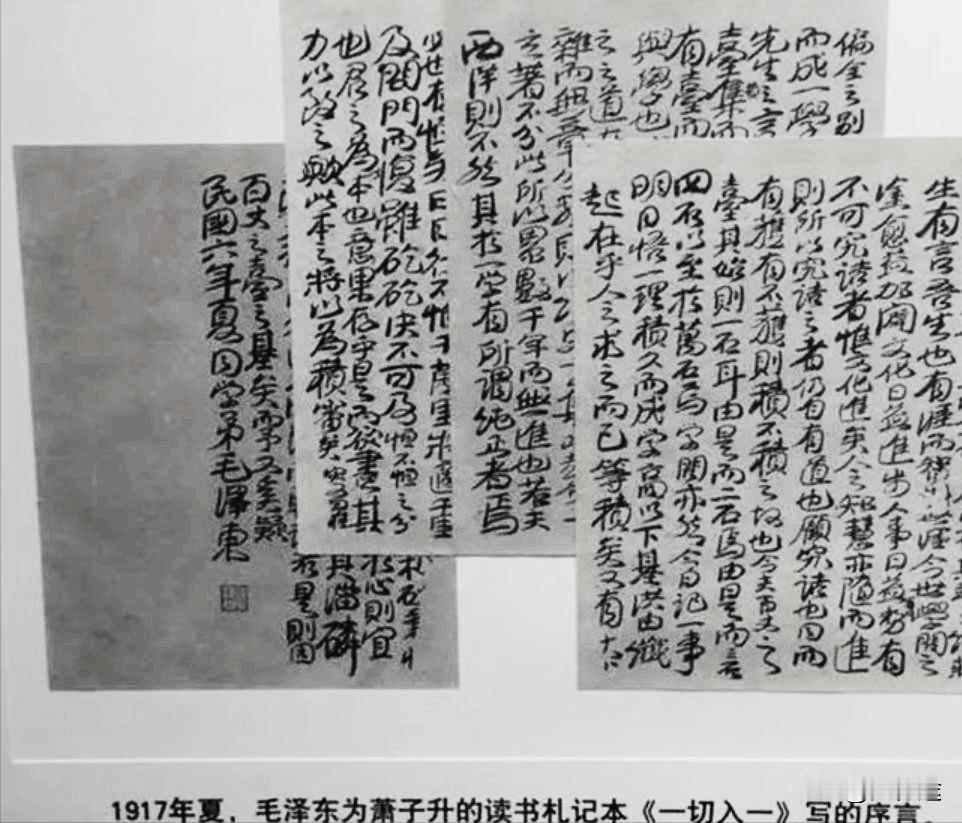 生有言吾生也有涯而智也無涯今世學問之
塗愈益加闢文化日益進步人事日益蕃有
不可究詰者惟文化進矣人之智慧亦隨而進
則所以究詰之者仍自有道也顧究詰也同而
有獲有不獲則積不積之故也今夫百丈之
臺其始則一石耳由是而二石焉由是而三
四石以至於萬石焉學問亦然今日記一事
明日悟一理積久而成学高以下基洪由纖
起在乎人之求之而已等積矣又有大小
偏全之别
而成一學
先生之言
臺集而
有臺而
與學也
之之道
雜而無章
之著不分此所以累數千年而無進也若夫
西洋則不然其於一学有所謂純正者焉
及閉門而復雖矻矻決不可及恒不恒之分
也君之為本也意果存乎是而發書其
力以啟之歟此本之將以為積
心則宜
其淄磷
是則固
百丈之臺之基矣而予又奚疑
民國六年夏同学弟毛澤東
1917年夏，毛泽东为萧子升的读书札记本《一切入一》写的序言。